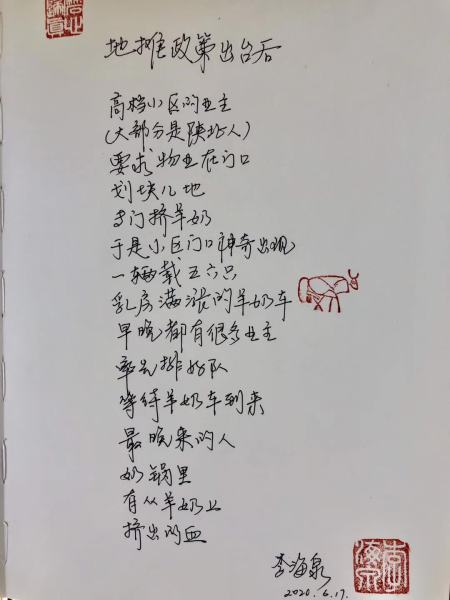 地摊政策出台后
高档小区的业主
(大部分是陕北人)
要求物业在门口
划块儿地
专门挤羊奶
于是小区门口神奇出现
一辆载五六只
乳房满涨的羊奶车
早晚都有很多业主
率先排好队
等待羊奶车到来
最晚来的人
奶锅里
有从羊奶上
挤出的血
李海泉
2020.6.17.